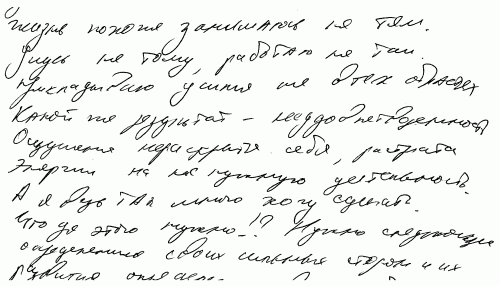 жизнь похоже занимаюсь не тем.
Учусь не тому, работаю не там.
Прикладываю усилия не в тех областях
Какой же результат - неудовлетворенность
Ощущение нераскрытия себя, растрата
Энергии на не нужную деятельность.
А я ведь так много хочу сделать.
Что для этого нужно!? Нужно следующее
определение своих сильных сторон и их
развития